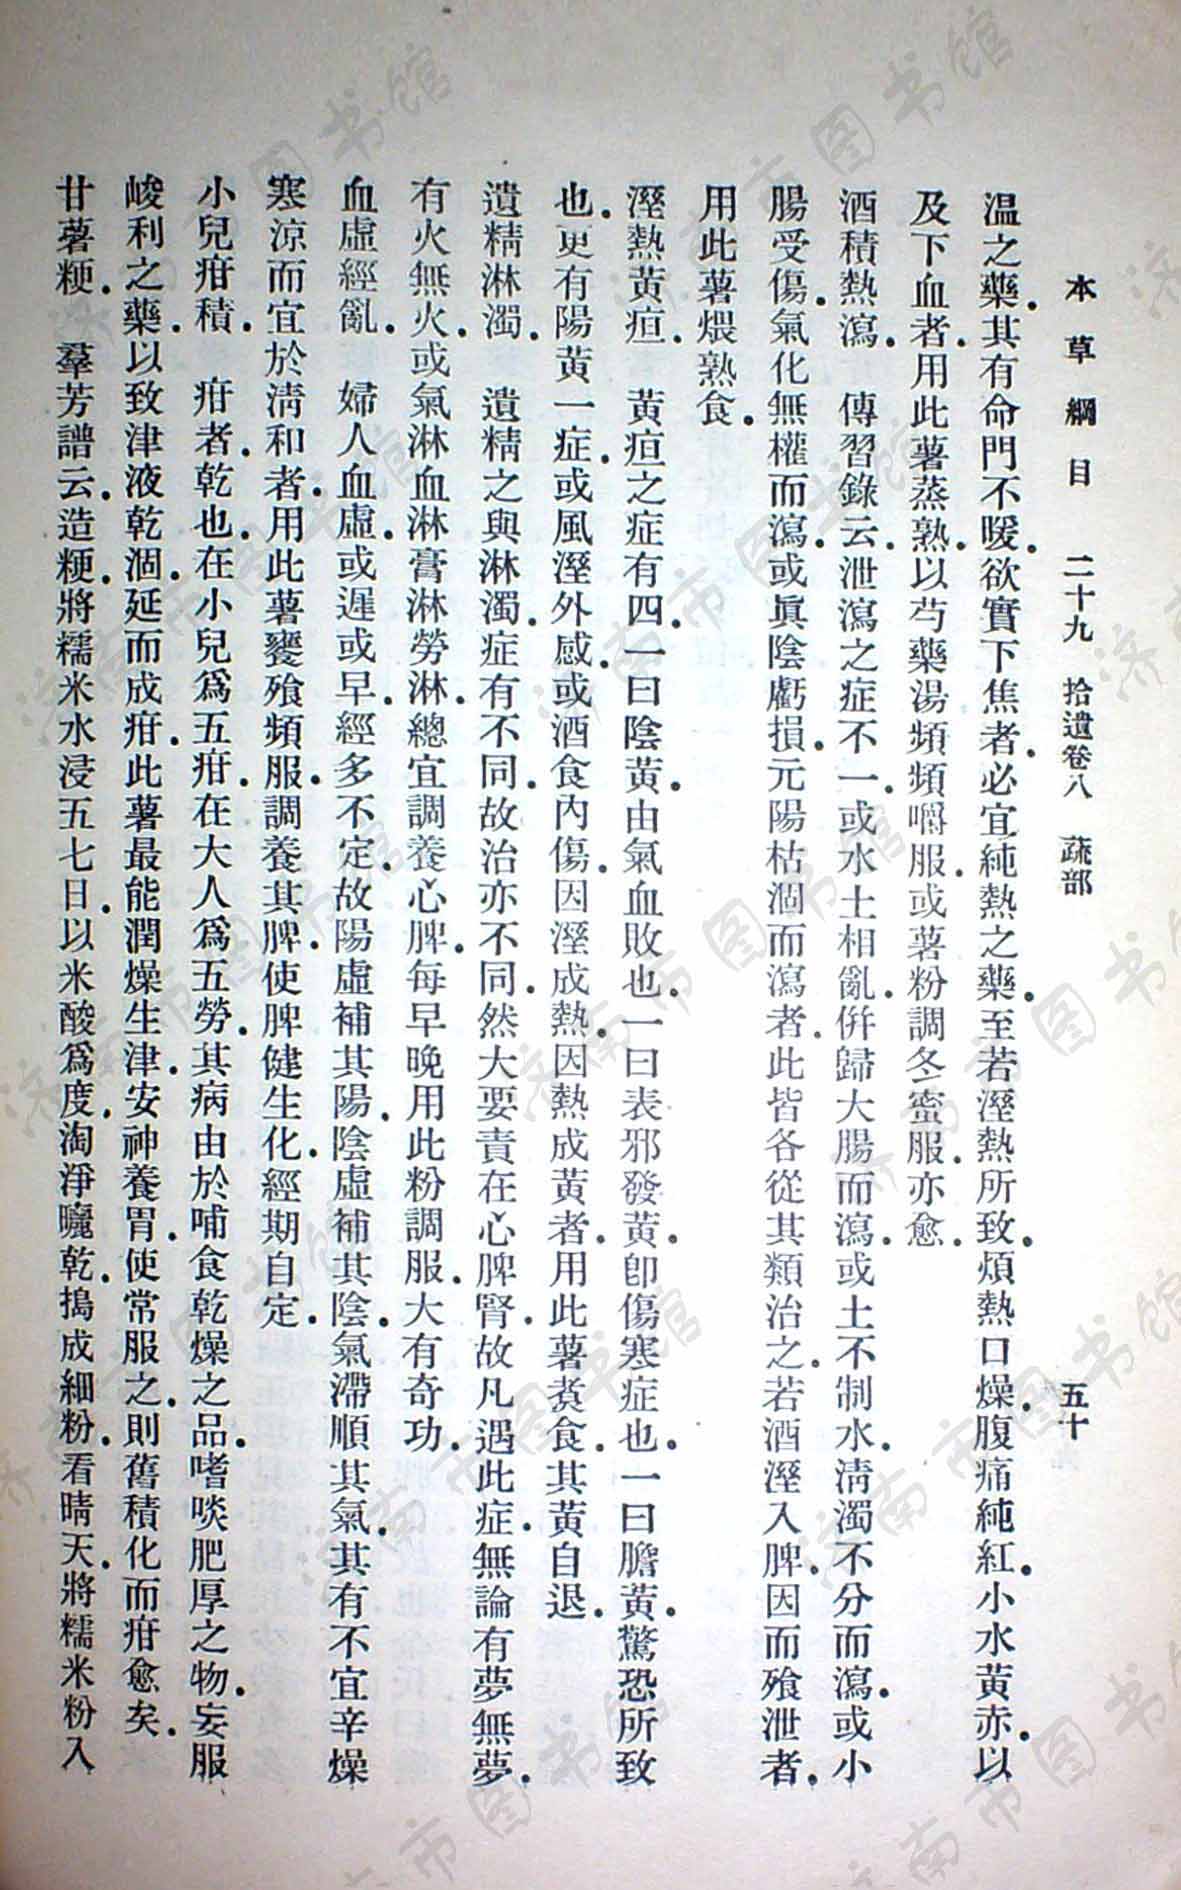 本草綱目 二十九 拾遺卷八 蔬部 五十
温之藥.其有命門不暖.欲實下焦者.必宜純熱之藥.至若溼熱所致.煩熱口燥.腹痛純紅.小水黃赤.以
及下血者.用此薯蒸熟.以芍藥湯頻頻嚼服.或薯粉調冬蜜服.亦愈.
酒積熱瀉. 傳習錄云.泄瀉之症不一.或水土相亂.倂歸大腸而瀉.或土不制水.淸濁不分而瀉.或小
腸受傷.氣化無權而瀉.或眞陰虧損.元陽枯涸而瀉者.此皆各從其類治之.若酒溼入脾.因而飱泄者.
用此薯煨熟食.
溼熱黃疸. 黃疸之症有四.一曰陰黃.由氣血敗也.一曰表邪發黃.卽傷寒症也.一曰膽黃.驚恐所致
也.更有陽黃一症.或風溼外感.或酒食內傷.因溼成熱.因熱成黃者.用此薯煑食.其黃自退.
遺精淋濁. 遺精之與淋濁.症有不同.故治亦不同.然大要責在心脾腎.故凡遇此症.無論有夢無夢.
有火無火.或氣淋血淋膏淋勞淋.總宜調養心脾.每早晚用此粉調服.大有奇功.
血虛經亂. 婦人血虛.或遲或早.經多不定.故陽虛補其陽.陰虛補其陰.氣滯順其氣.其有不宜辛燥
寒涼而宜於淸和者.用此薯饔飱頻服.調養其脾.使脾健生化.經期自定.
小兒疳積. 疳者.乾也.在小兒爲五疳.在大人爲五勞.其病由於哺食乾燥之品.嗜啖肥厚之物.妄服
峻利之藥.以致津液乾涸.延而成疳.此薯最能潤燥生津.安神養胃.使常服之.則舊積化而疳愈矣.
甘薯粳. 羣芳譜云.造粳.將糯米水浸五七日.以米酸爲度.淘淨曬乾.搗成細粉.看晴天.將糯米粉入
济南市图书馆